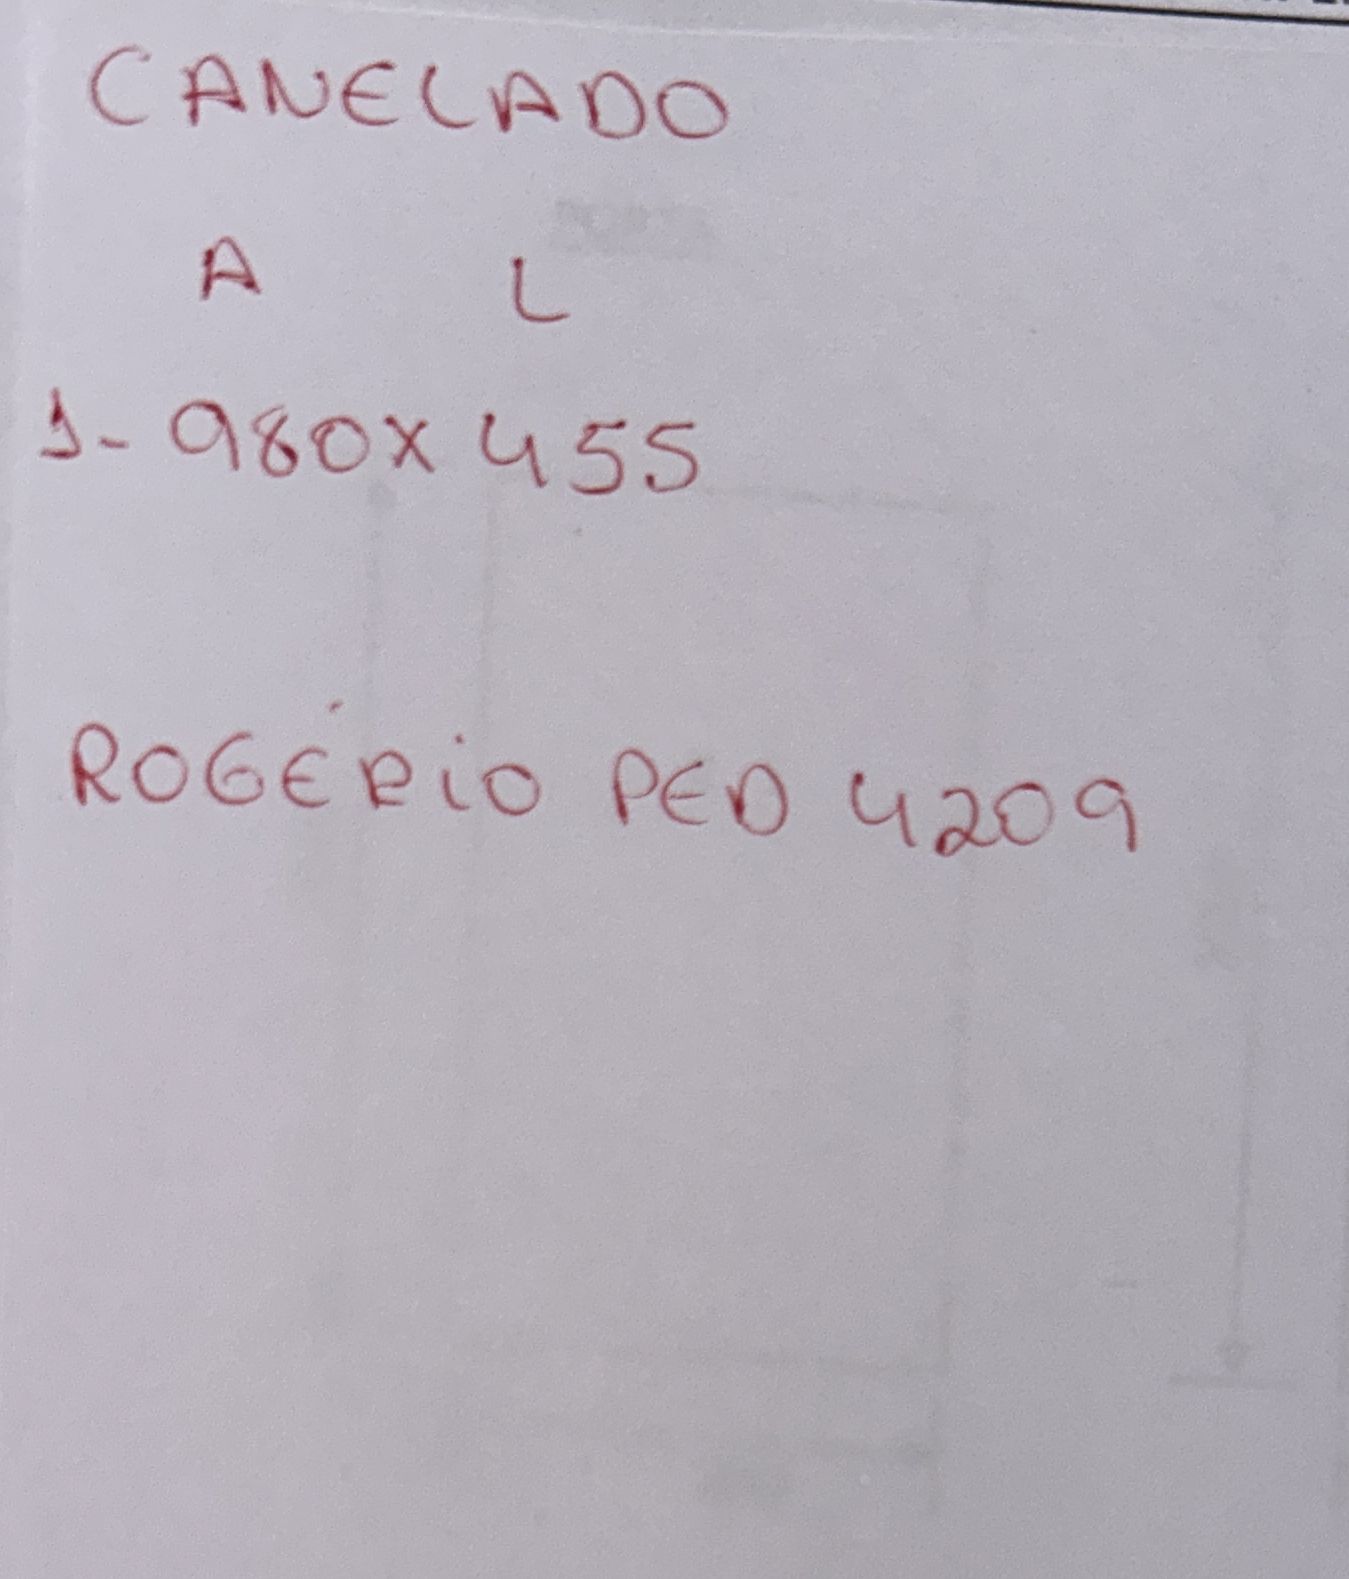 CANELADO
A L
1- 980X 455
ROGÉRIO PED 4209